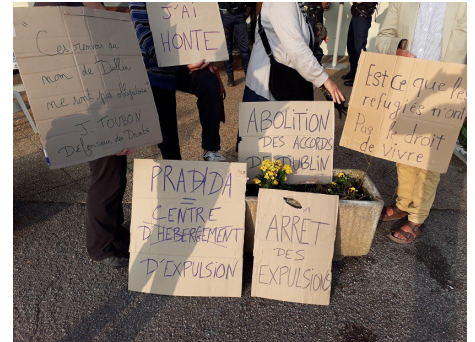 "Ces renvois au
nom de Dublin
ne sont pas obligatoires"
J. TOUBON
Défenseur des Droits
J'AI
HONTE
ABOLITION
DES ACCORDS
DE DUBLIN
Est ce que les
refugiés n'ont
Pas le droit
de vivre
PRADIDA
=
CENTRE
D'HEBERGEMENT
D'EXPULSION
ARRET
DES
EXPULSIONS